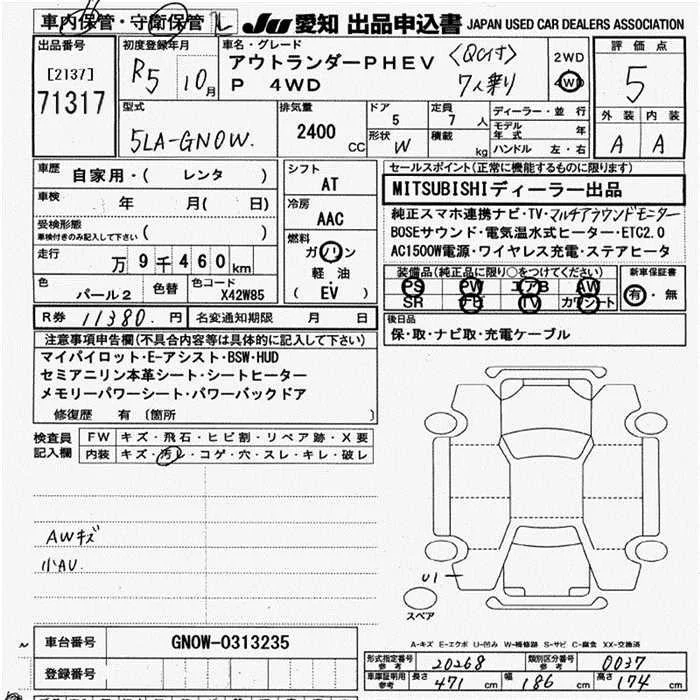 車内保管・守衛保管 ル JU 愛知 出品申込書 JAPAN USED CAR DEALERS ASSOCIATION
出品番号
[2137]
71317
初度登録年月
R5 10月
車名・グレード
アウトランダーPHEV 〈QC付〉
P 4WD 7人乗り
2WD
4WD
評価点
5
外装 内装
A A
型式
5LA-GNOW.
排気量
2400 CC
ドア
5
定員
7人
形状
W
積載
kg
ディーラー・並行
モデル年式 年
ハンドル 左・右
車歴
自家用・( レンタ )
車検
年 月( 日)
受検形態
車検付きのみ記入して下さい ( )
走行
万9千460km
色
パール2
色替
色コード
X42W85
シフト
AT
冷房
AAC
燃料
ガソリン
軽油
( EV )
セールスポイント(正常に機能するものに限ります)
MITSUBISHIディーラー出品
純正スマホ連携ナビ・TV・マルチアラウンドモニター
BOSEサウンド・電気温水式ヒーター・ETC2.0
AC1500W電源・ワイヤレス充電・ステアヒータ
装備品(純正品に限り○をつけてください)
PS PW エアB AW
SR TV カワシート
新車保証書
有・無
R券 11380.円 名変通知期限 月 日
後日品
保・取・ナビ取・充電ケーブル
注意事項申告欄(不具合内容等は具体的に記入して下さい)
マイパイロット・E-アシスト・BSW・HUD
セミアニリン本革シート・シートヒーター
メモリーパワーシート・パワーバックドア
修復歴 有 〔箇所 〕
検査員記入欄
FW キズ・飛石・ヒビ割・リペア跡・X要
内装 キズ・汚レ・コゲ・穴・スレ・キレ・破レ
AWキズ
小AU.
U1
スペア
A-キズ E-エクボ U-凹み W-補修跡 S-サビ C-腐食 XX-交換済
車台番号 GN0W-0313235
登録番号
形式指定番号 参考 20268 類別区分番号 参考 0037
車庫証明用 参考 長さ 471 cm 幅 186 cm 高さ 174 cm